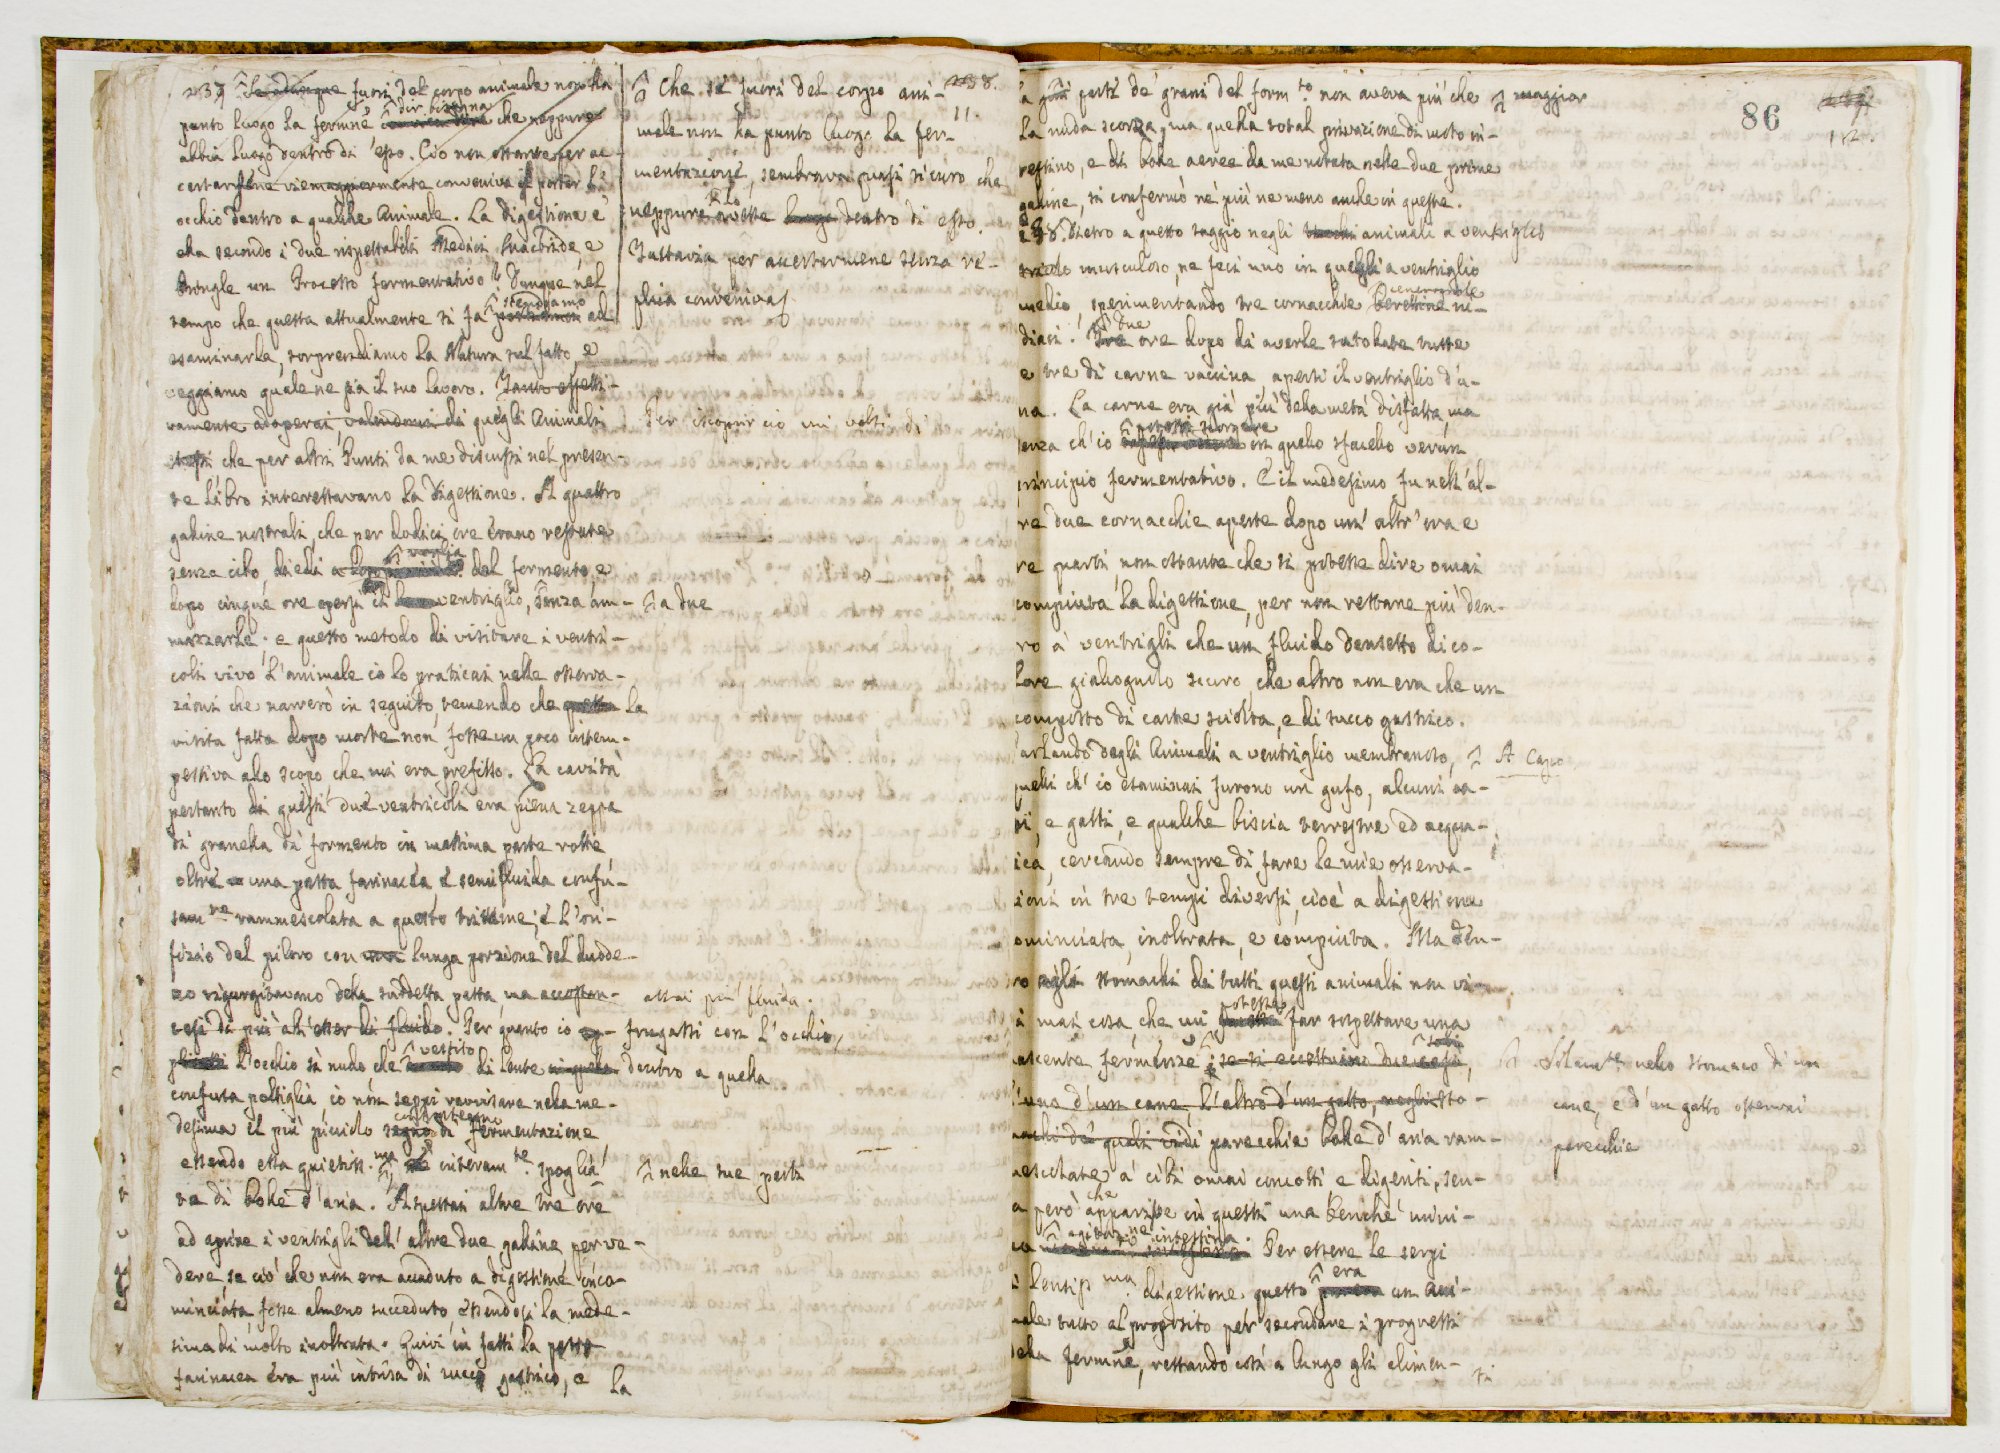 237 Se adunque fuori del corpo animale non ha
punto luogo la fermne dir bisogna che neppure
abbia luogo dentro di esso. Ciò non ostante per ac-
certarsene viemaggiormente conveniva il portar l'
occhio dentro a qualche Animale. La digestione è
ella secondo i due rispettabili Medici Macbride, e
Pringle un Processo fermentativo? Dunque nel
tempo che questa attualmente si fa stendiamo ad
esaminarla, sorprendiamo la Natura sul fatto, e
veggiamo quale ne sia il suo lavoro. Tanto effetti-
vamente adoperai, valendomi di quegli Animali
stessi che per altri Punti da me discussi nel presen-
te Libro interessavano la digestione. A quattro
galline nostrali, che per dodici ore erano restate
senza cibo, diedi a voglia del formento, e
dopo cinque ore apersi il ventriglio, senza am-
mazzarle; e questo metodo di visitare i ventri-
coli vivo l'animale io lo praticai nelle osserva-
zioni che narrerò in seguito, temendo che la
visita fatta dopo morte non fosse un poco intem-
pestiva allo scopo che mi era prefisso. La cavità
pertanto di questi due ventricoli era piena zeppa
di granella di formento in massima parte rotte
oltre a una pasta farinacea e semifluida confu-
samte rammescolata a questo tritume; e l'ori-
fizio del piloro con una lunga porzione del duode-
no rigurgitavano della suddetta pasta ma accostan-
tesi di più all'esser di fluido. Per quanto io
l'occhio sì nudo che vestito di lente in quella
confusa poltiglia io non seppi ravvisare nella me-
desima il più picciolo segno di fermentazione
essendo essa quietiss.ma e interamte spoglia-
ta di bolle d'aria. Aspettai altre tre ore
ad aprire i ventrigli dell'altre due galline per ve-
dere se ciò che non era accaduto a digestione inco-
minciata fosse almeno succeduto essendosi la mede-
sima di molto inoltrata. Quivi in fatti la pasta
farinacea era più intrisa di succo gastrico, e
la
238.
11.
Che se fuori del corpo ani-
male non ha punto luogo la fer-
mentazione, sembrava quasi sicuro che
neppure lo avesse luogo dentro di esso.
Tuttavia per accertarmene senza re-
plica conveniva
Per iscoprir ciò mi volsi di
a due
assai più fluida.
frugassi con l'occhio
dentro a quella
nelle sue parti
86
12.
parti de' grani del formto non aveva più che maggior
la nuda scorza, ma quella total privazione di moto in-
testino, e di bolle aeree da me notata nelle due prime
galline, si confermò nè più ne meno anche in queste.
238. Dietro a questo saggio negli animali a ventriglio
musculoso, ne feci uno in quegli a ventriglio
medio, sperimentando tre cornacchie cenerognole ni-
diaci. due ore dopo di averle satollate tutte
e tre di carne vaccina, apersi il ventriglio d'u-
na. La carne era già più della metà disfatta ma
senza ch'io potessi scorgere in quello sfacelo verun
principio fermentativo. E il medesimo fu nell'al-
tre due cornacchie aperte dopo un' altr' ora e
tre quarti, non ostante che si potesse dire omai
compiuta la digestione, per non restare più den-
tro a' ventrigli che un fluido densetto di co-
lore giallognolo scuro, che altro non era che un
composto di carne sciolta, e di succo gastrico.
Parlando degli Animali a ventriglio membranoso, A Capo
quelli ch'io esaminai furono un gufo, alcuni ca-
ni, e gatti, e qualche biscia terrestre ed acqua-
tica, cercando sempre di fare le mie osserva-
zioni in tre tempi diversi, cioè a digestione
cominciata, inoltrata, e compiuta. Ma den-
tro agli stomachi di tutti questi animali non vi-
di mai cosa che mi potesse far sospettare una
nascente fermenze; se si eccettuino due soli casi,
l'uno d'un cane, l'altro d'un gatto, negli sto-
machi de' quali vidi parecchie bolle d'aria ram-
mescolate a' cibi omai concotti e digeriti, sen-
za però che apparisse in questi una benchè mini-
ma agitazne intestina. Per essere le serpi
di lentissma digestione questo era un ani-
male tutto al proposito per secondare i progressi
della fermne, restando così a lungo gli alimen-
ti
Solamte nello stomaco di un
cane, e d'un gatto osservai
parecchie